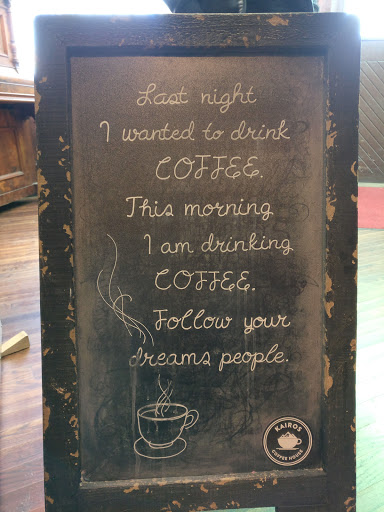 Last night
I wanted to drink
COFFEE.
This morning
I am drinking
COFFEE.
Follow your
dreams people.
KAIROS
COFFEE HOUSE